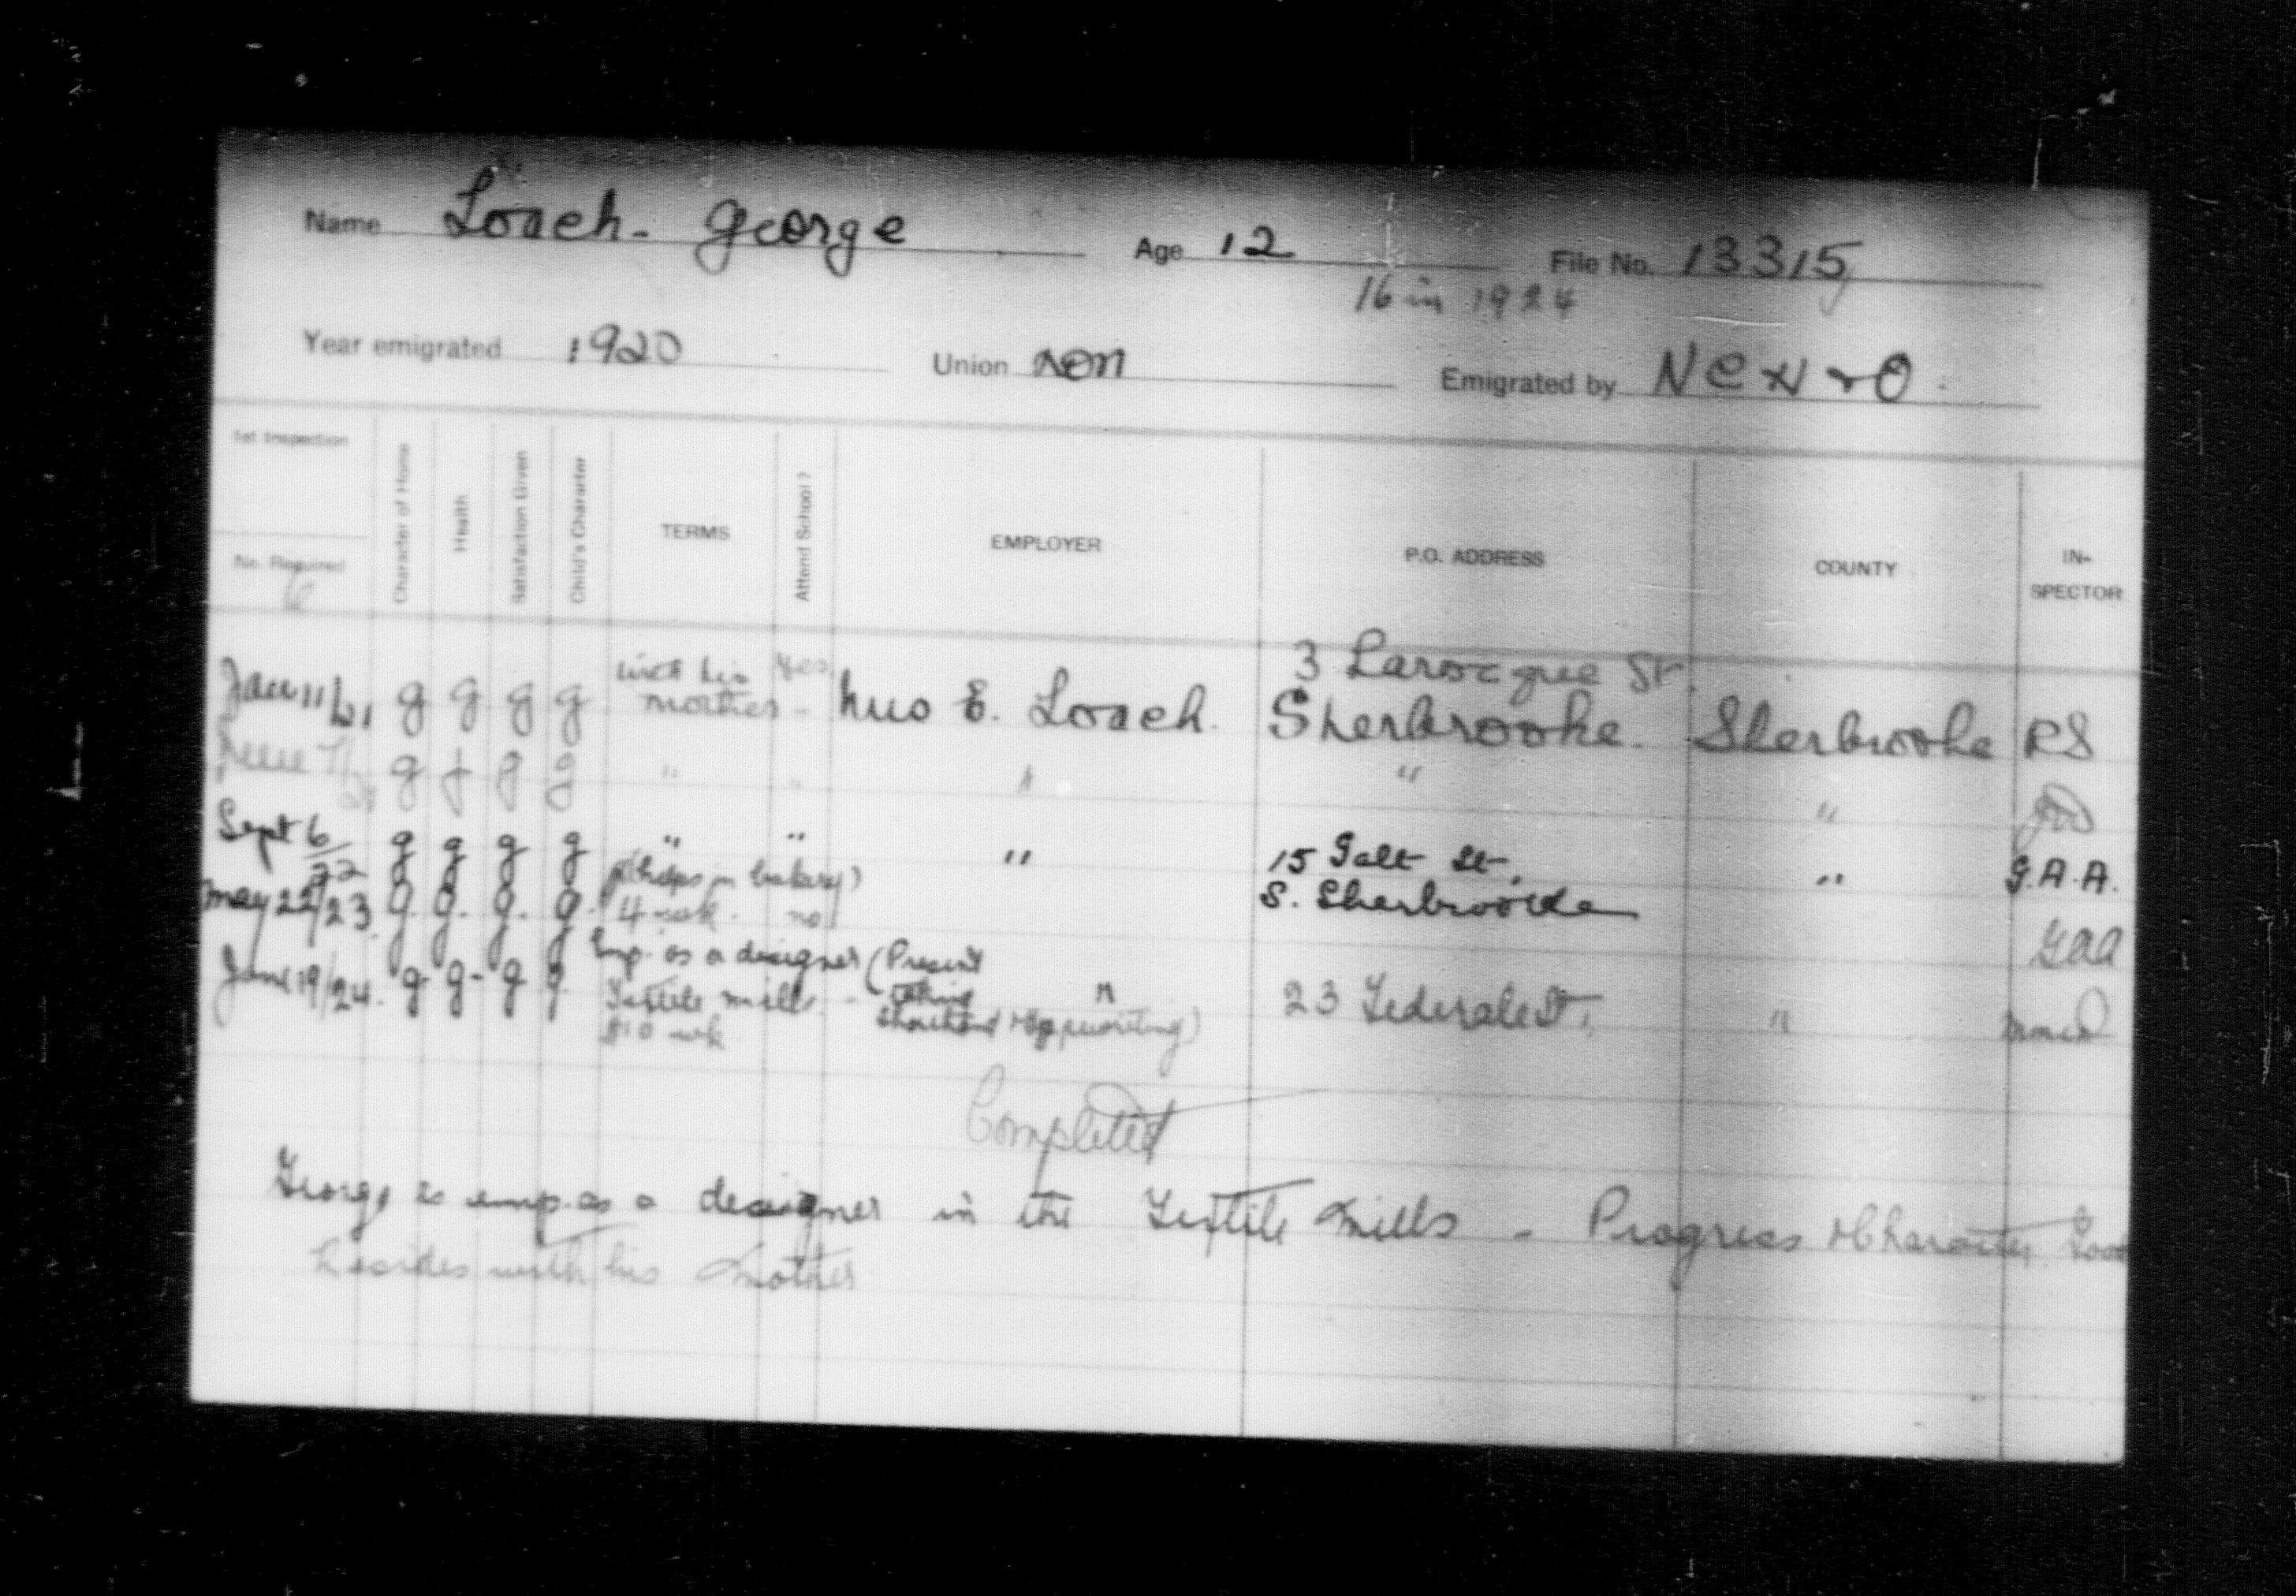 Name Loach - George Age 12 File No. 13315
16 in 1924
Year emigrated 1920 Union non Emigrated by N C H & O
1st Inspection
No. Required 6
Character of Home Health Satisfaction Given Child's Character TERMS Attend School? EMPLOYER P.O. ADDRESS COUNTY IN-SPECTOR
with his Yes 3 Larocque St.
Jan 11/21 g g g g mother - Mrs E. Loach. Sherbrooke. Sherbrooke RS
June 7/21 g g g g " " " " "
Sept 6/22 g g g g " " " 15 Galt St., " G.A.A.
(helps in bakery) S. Sherbrooke
May 22/23 g. g. g. g. 4 week. no GAA
Emp. as a designer (Present
June 19/24. g g - g g Textile mills - taking " 23 Federal St., "
$10 wk shorthand & typewriting)
Completed
George is emp. as a designer in the Textile Mills - Progress & Character Good
Resides with his Mother